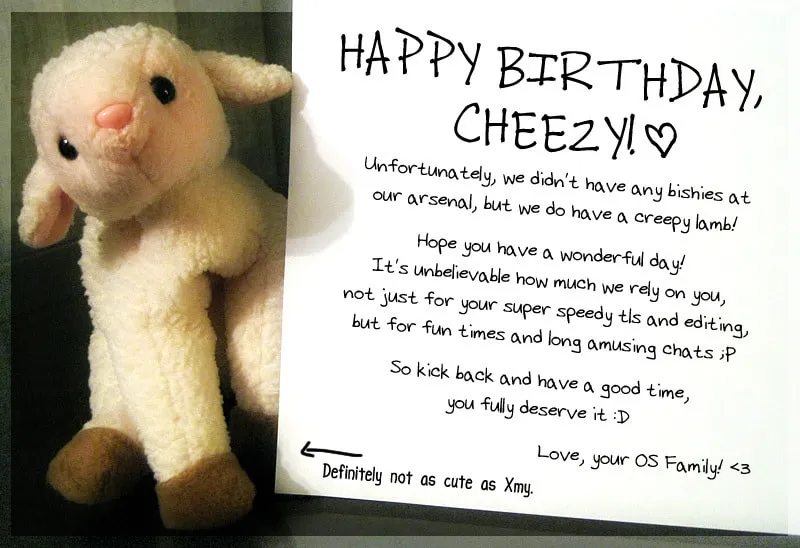 HAPPY BIRTHDAY,
CHEEZY! ♡
Unfortunately, we didn't have any bishies at
our arsenal, but we do have a creepy lamb!
Hope you have a wonderful day!
It's unbelievable how much we rely on you,
not just for your super speedy tls and editing,
but for fun times and long amusing chats ;P
So kick back and have a good time,
you fully deserve it :D
Love, your OS Family! <3
Definitely not as cute as Xmy.